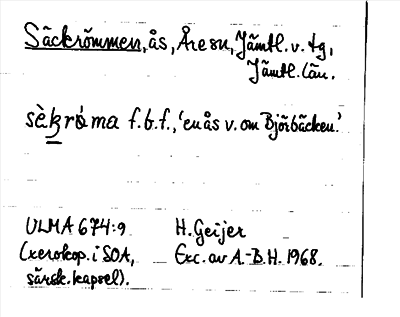 Säckrömmen, ås, Åre sn, Jämtl. v. tg,
Jämtl. län.
sèkrö́ma f.b.f., 'en ås v. om Björbäcken.'
ULMA 674:9 H. Geijer
(xerokop. i SOA, Exc. av A.-B.H. 1968.
särsk. kapsel).